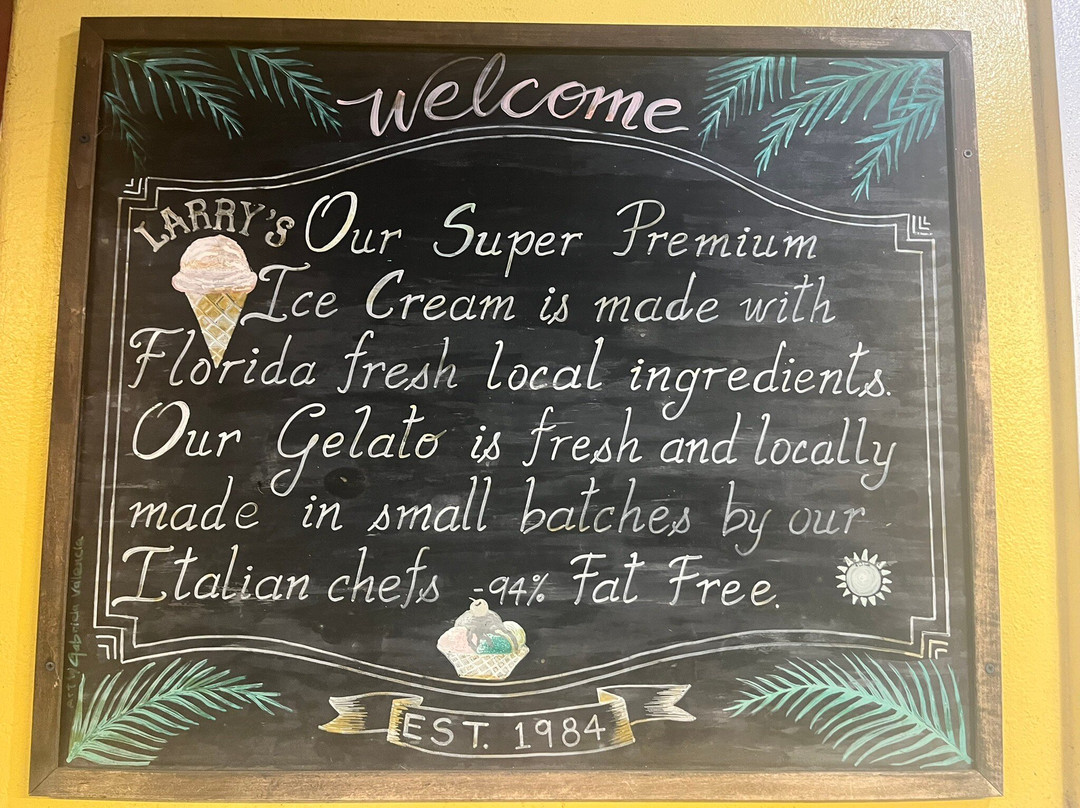 welcome
LARRY'S
Our Super Premium
Ice Cream is made with
Florida fresh local ingredients.
Our Gelato is fresh and locally
made in small batches by our
Italian chefs -94% Fat Free.
EST. 1984